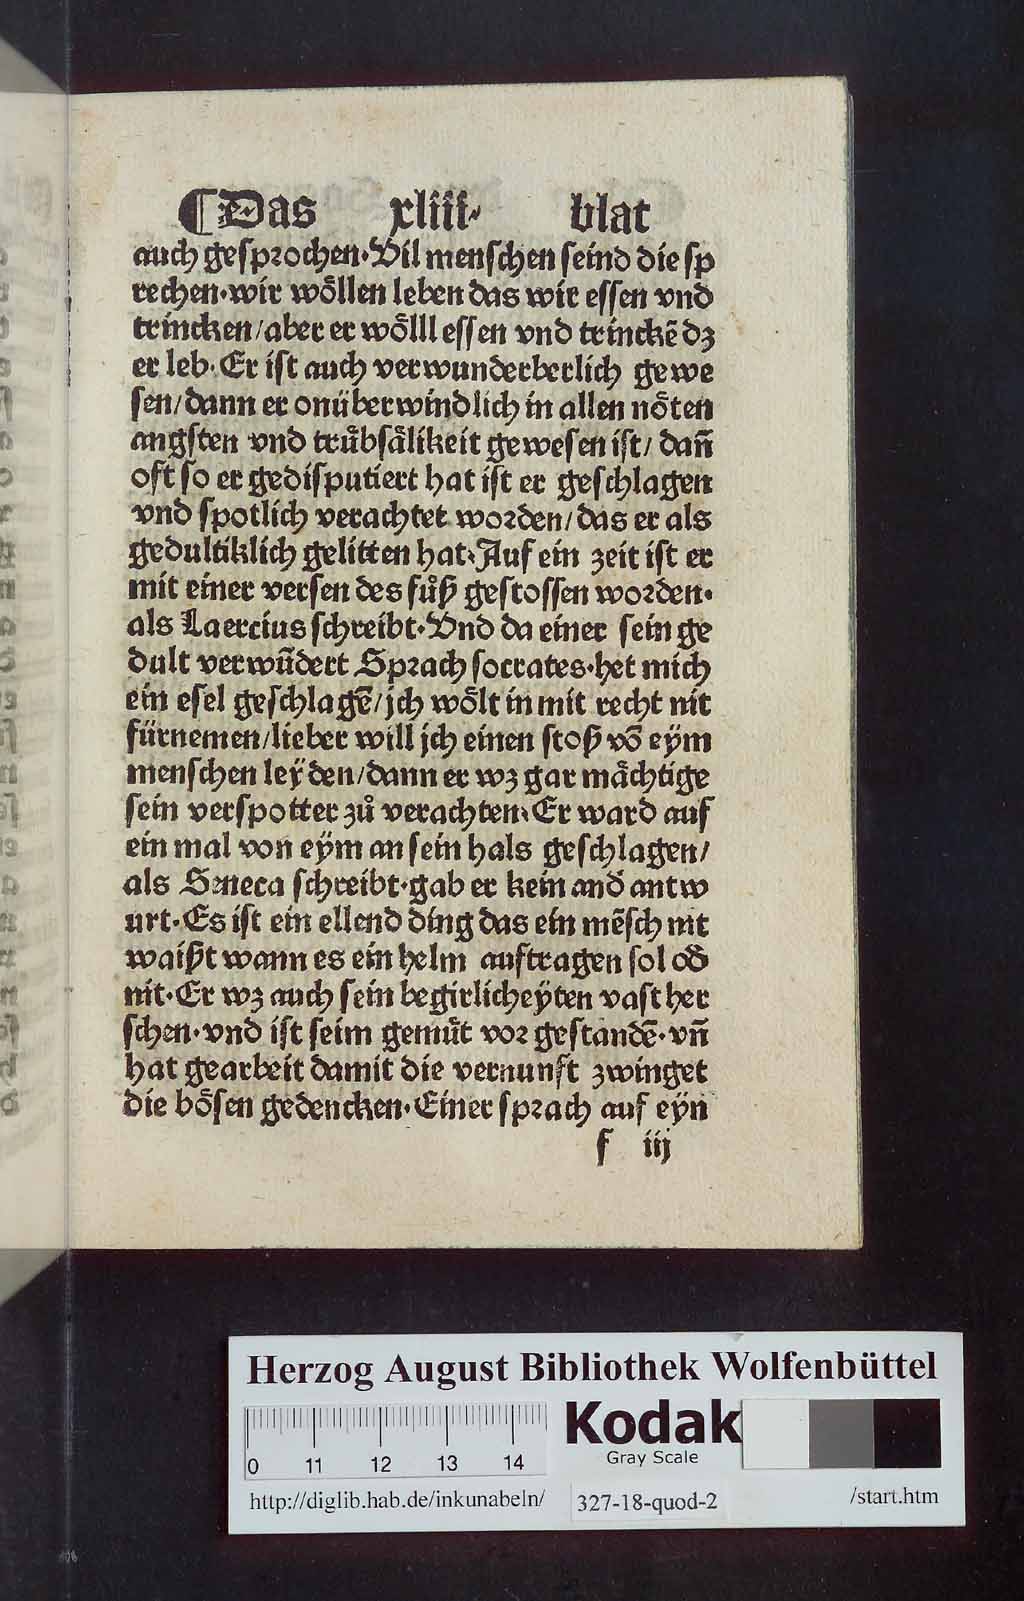 ⸿Das xliii. blat
auch gesprochen. Vil menschen seind die sp
rechen. wir woͤllen leben das wir essen vnd
trincken/aber er woͤlll essen vnd trinckē dz
er leb. Er ist auch verwunderberlich gewe
sen/dann er onüberwindlich in allen noͤten
angsten vnd truͤbsaͤlikeit gewesen ist/ dañ
oft so er gedisputiert hat ist er geschlagen
vnd spotlich verachtet worden/das er als
gedultiklich gelitten hat. Auf ein zeit ist er
mit einer versen des fuͦß gestossen worden.
als Laercius schreibt. Vnd da einer sein ge
dult verwūdert Sprach socrates. het mich
ein esel geschlagē/jch woͤlt in mit recht nit
fürnemen/lieber will jch einen stoß võ eÿm
menschen leÿden/dann er wz gar maͤchtige
sein verspotter zuͦ verachten. Er ward auf
ein mal von eÿm an sein hals geschlagen/
als Seneca schreibt. gab er kein and̛ antw
urt. Es ist ein ellend ding das ein mēsch nit
waißt wann es ein helm auftragen sol od̛
nit. Er wz auch sein begirlicheÿten vast her
schen. vnd ist seim gemuͤt vor gestandē. vñ
hat gearbeit damit die vernunft zwinget
die boͤsen gedencken. Einer sprach auf eÿn
f iij
Herzog August Bibliothek Wolfenbüttel
0 11 12 13 14
Kodak
Gray Scale
http://diglib.hab.de/inkunabeln/ 327-18-quod-2 /start.htm